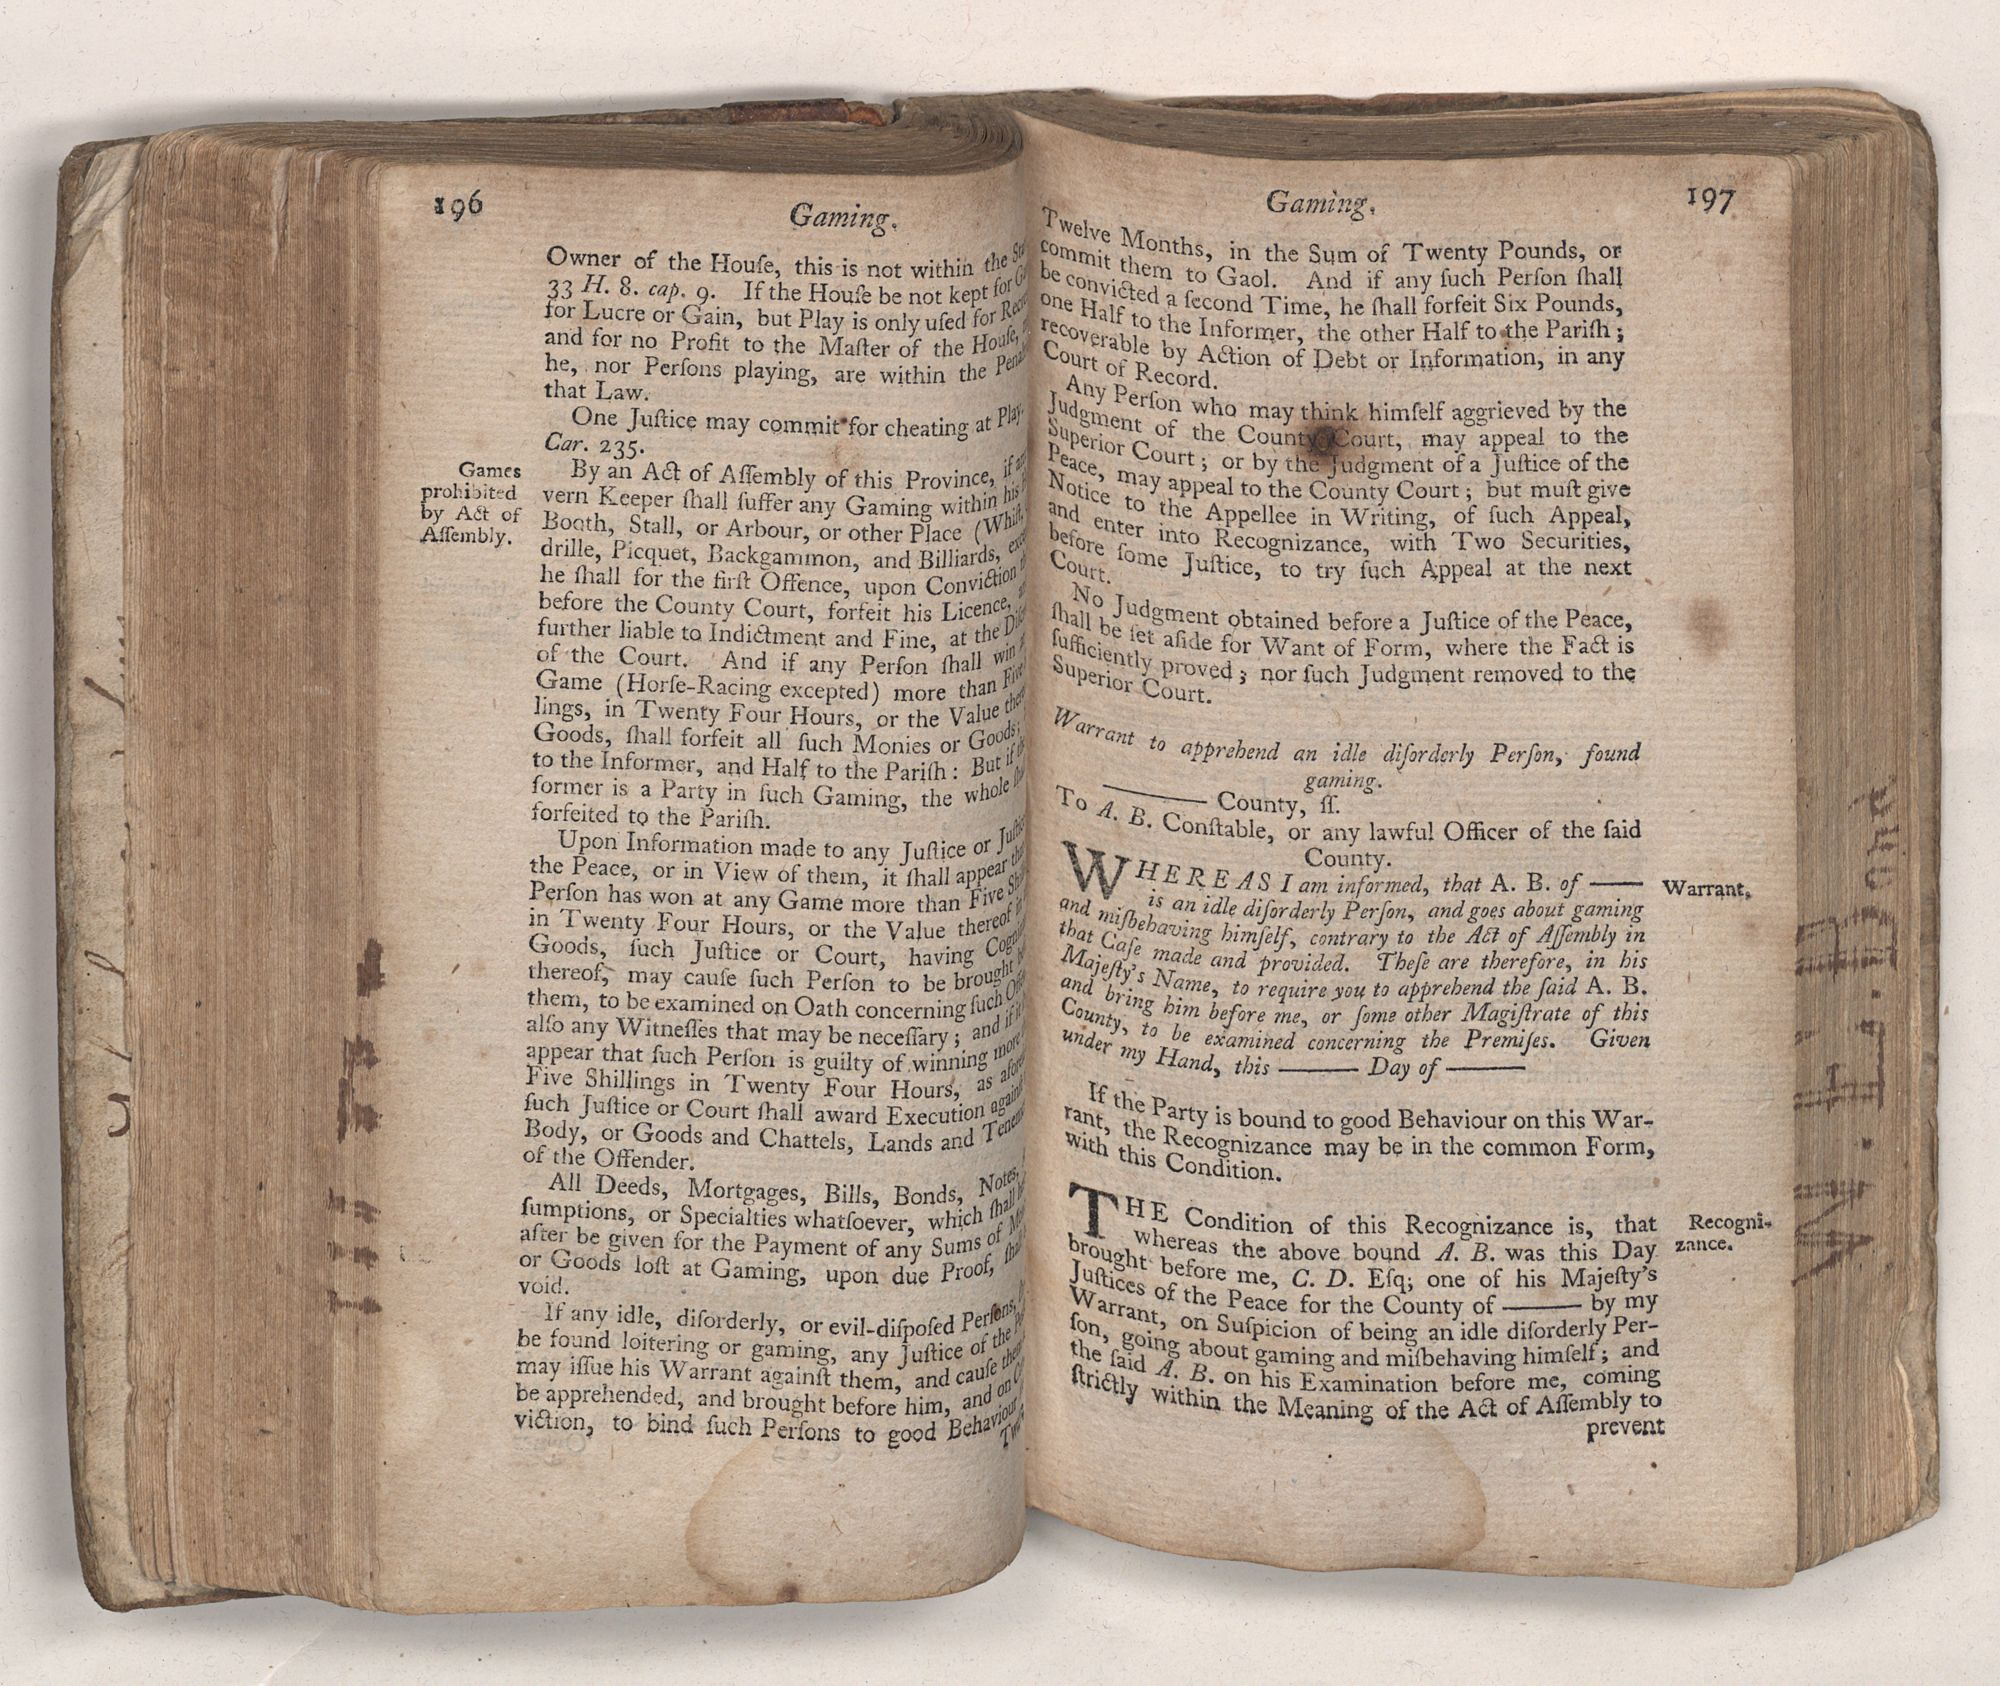 196
Gaming.
Owner of the Houſe, this is not within the
33 H. 8. cap. 9. If the Houſe be not kept for
for Lucre or Gain, but Play is only uſed for
and for no Profit to the Maſter of the Houſe,
he, nor Perſons playing, are within the
that Law.
One Juſtice may commit for cheating at Play.
Car. 235.
Games
prohibited
by Act of
Aſſembly.
By an Act of Aſſembly of this Province, if
vern Keeper ſhall ſuffer any Gaming within his
Booth, Stall, or Arbour, or other Place (Whiſt,
drille, Picquet, Backgammon, and Billiards,
he ſhall for the firſt Offence, upon Conviction
before the County Court, forfeit his Licence,
further liable to Indictment and Fine, at the
of the Court. And if any Perſon ſhall win
Game (Horſe-Racing excepted) more than Five
lings, in Twenty Four Hours, or the Value
Goods, ſhall forfeit all ſuch Monies or Goods;
to the Informer, and Half to the Pariſh: But if
former is a Party in ſuch Gaming, the whole
forfeited to the Pariſh.
Upon Information made to any Juſtice or
the Peace, or in View of them, it ſhall appear
Perſon has won at any Game more than Five
in Twenty Four Hours, or the Value thereof
Goods, ſuch Juſtice or Court, having
thereof, may cauſe ſuch Perſon to be brought
them, to be examined on Oath concerning ſuch
alſo any Witneſſes that may be neceſſary; and if
appear that ſuch Perſon is guilty of winning more
Five Shillings in Twenty Four Hours, as
ſuch Juſtice or Court ſhall award Execution
Body, or Goods and Chattels, Lands and
of the Offender.
All Deeds, Mortgages, Bills, Bonds, Notes,
ſumptions, or Specialties whatſoever, which ſhall
after be given for the Payment of any Sums of
or Goods loſt at Gaming, upon due Proof,
void.
If any idle, diſorderly, or evil-diſpoſed Perſons,
be found loitering or gaming, any Juſtice of the
may iſſue his Warrant againſt them, and cauſe
be apprehended, and brought before him, and on
viction, to bind ſuch Perſons to good Behaviour
Gaming.
197
Twelve Months, in the Sum of Twenty Pounds, or
commit them to Gaol. And if any ſuch Perſon ſhall
be convicted a ſecond Time, he ſhall forfeit Six Pounds,
one Half to the Informer, the other Half to the Pariſh;
recoverable by Action of Debt or Information, in any
Court of Record.
Any Perſon who may think himſelf aggrieved by the
Judgment of the County Court, may appeal to the
Superior Court; or by the Judgment of a Juſtice of the
Peace, may appeal to the County Court; but muſt give
Notice to the Appellee in Writing, of ſuch Appeal,
and enter into Recognizance, with Two Securities,
before ſome Juſtice, to try ſuch Appeal at the next
Court.
No Judgment obtained before a Juſtice of the Peace,
ſhall be ſet aſide for Want of Form, where the Fact is
ſufficiently proved; nor ſuch Judgment removed to the
Superior Court.
Warrant to apprehend an idle diſorderly Perſon, found
gaming.
—— County, ſſ.
To A. B. Conſtable, or any lawful Officer of the ſaid
County.
WHEREAS I am informed, that A. B. of ——
is an idle diſorderly Perſon, and goes about gaming
and miſbehaving himſelf, contrary to the Act of Aſſembly in
that Caſe made and provided. Theſe are therefore, in his
Majeſty's Name, to require you to apprehend the ſaid A. B.
and bring him before me, or ſome other Magiſtrate of this
County, to be examined concerning the Premiſes. Given
under my Hand, this —— Day of ——
Warrant.
If the Party is bound to good Behaviour on this War-
rant, the Recognizance may be in the common Form,
with this Condition.
THE Condition of this Recognizance is, that
whereas the above bound A. B. was this Day
brought before me, C. D. Eſq; one of his Majeſty's
Juſtices of the Peace for the County of —— by my
Warrant, on Suſpicion of being an idle diſorderly Per-
ſon, going about gaming and miſbehaving himſelf; and
the ſaid A. B. on his Examination before me, coming
ſtrictly within the Meaning of the Act of Aſſembly to
prevent
Recogni-
zance.